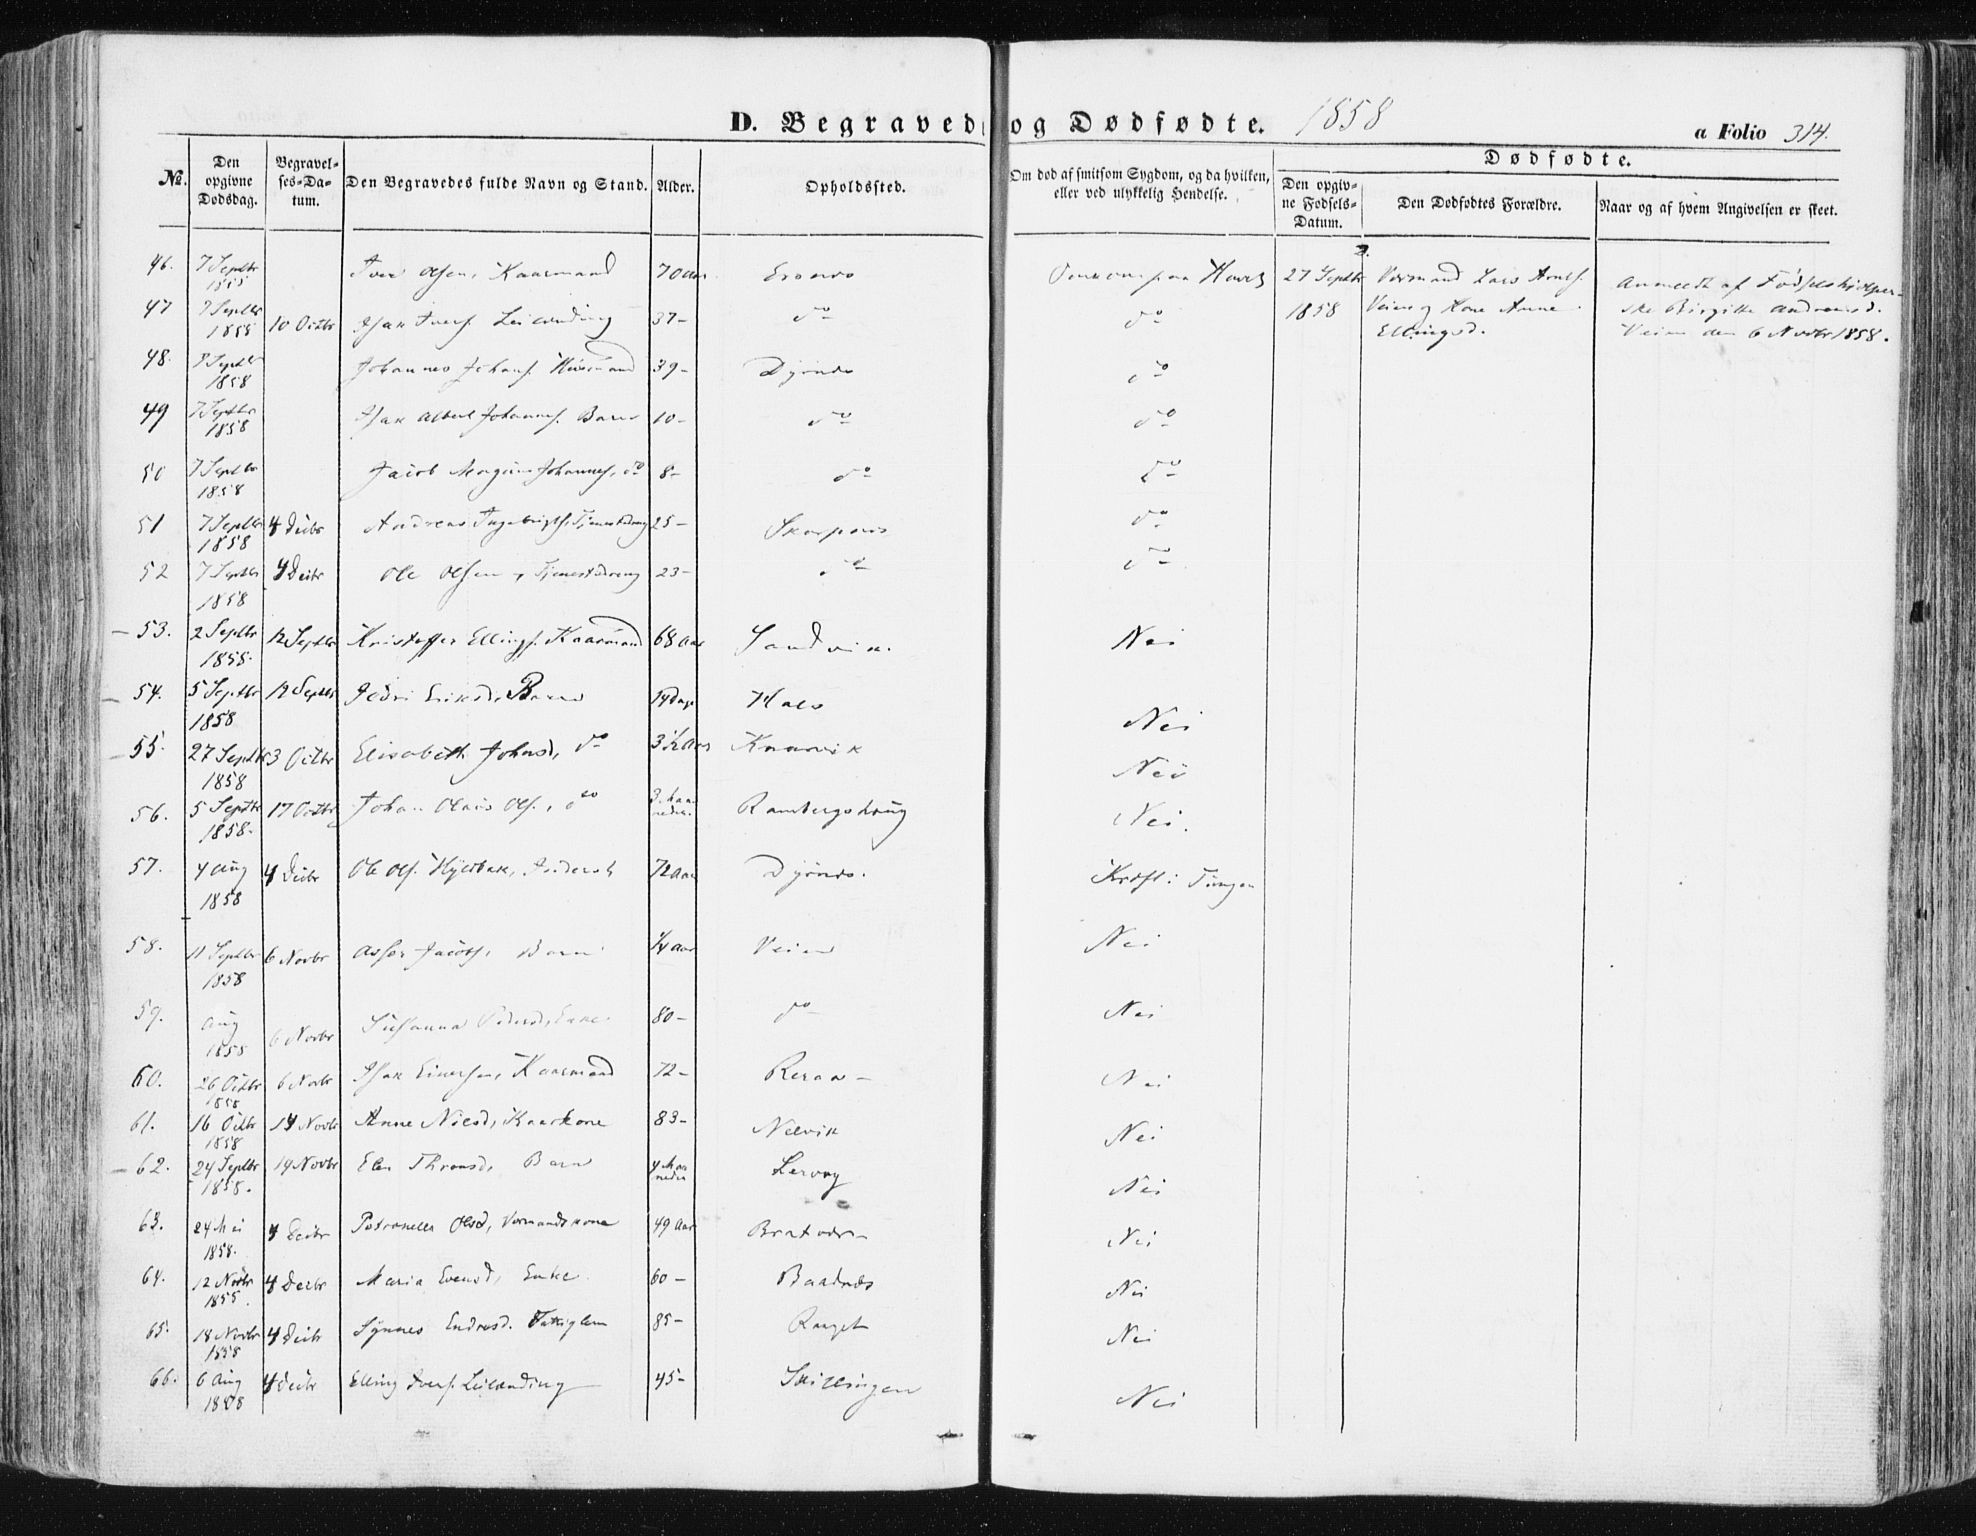 D. Begravede og Dødfødte. 1858
a Folio 314.
No. Den opgivne Dødsdag. Begravelses-Datum. Den Begravedes fulde Navn og Stand. Alder. Opholdssted. Om død af smitsom Sygdom, og da hvilken, eller ved ulykkelig Hendelse.
Dødfødte.
Den opgivne Fødsels-Datum. Den Dødfødtes Forældre. Naar og af hvem Angivelsen er skeet.
46. 7 Septbr Iver Olsen, Kaarmand 70 aar Omkommen paa Havet
47 7 Septbr 1858 10 Octbr Isak Ivers. Leilænding 37- do do
48. 7 Septbr 1858 Johannes Johans. Huusmand 39- Dyrnes do
49 7 Septbr 1858 Isak Albert Johannes. Barn 10- do do
50 7 Septbr 1858 Jacob Johannes. do 8- do do
51 7 Septbr 1858 4 Decbr Andreas Ingebrigts. Tjenestedreng 25- Skarpnes do
52 7 Septbr 1858 4 Decbr Ole Olsen, Tjenestedreng 23- do do
53. 2 Septbr 1858. 12 Septbr Kristoffer Ellings. Kaarmand 68 Aar Sandvik. Nei
54. 5 Septbr 1858 12 Septbr Eriksd, Barn 14 dage Hals Nei
55. 27 Septbr 1858 3 Octbr Elisabeth Johnsd, do 3 ½ Aar Knarvik Nei
56. 5 Septbr 1858. 17 Octbr Johan Olaus Ols., do 3 Maaneder. Rambergshaug Nei.
57. 4 Aug 1858 4 Decbr Ole Ols. Hjelbak, Inderst 72 aar Dyrnes. Kræft i Tungen
58. 11 Septbr 1858 6 Novbr Asser Jacobs, Barn ¼ Aar Veien Nei
59. Aug 1858 6 Novbr Susanna Pedersd, Enke. 80- do Nei
60. 26 Octbr 1858 6 Novbr Isak Einersen, Kaarmand 72- Nei
61. 16 Octbr 1858 14 Novbr Anne Nilsd, Kaarkone 83- Nelvik Nei
62. 24 Septbr 1858. 14 Novbr Elen Thronsd, Barn 4 Maaneder Lervog Nei
63. 24 Mai 1858. 4 Decbr Petronelle Olsd, Vormandskone 49 Aar Bratvær- Nei
64. 12 Novbr 1858. 4 Decbr Maria Evensd, Enke. 60- Baadnes Nei
65. 18 Novbr 1858 4 Decbr Synnes Endresd. Fattiglem 85- Nei
66. 6 Aug 1858 4 Decbr Elling Ivers. Leilænding 45- Skillingen Nei
2.
27 Septbr 1858
Vormand Lars Arnts.
Veien og Kone Anne
Ellingsd.
Anmeldt af Fødselshjelper-
ske Birgitte Andreasd.
Veien den 6 Novbr 1858.